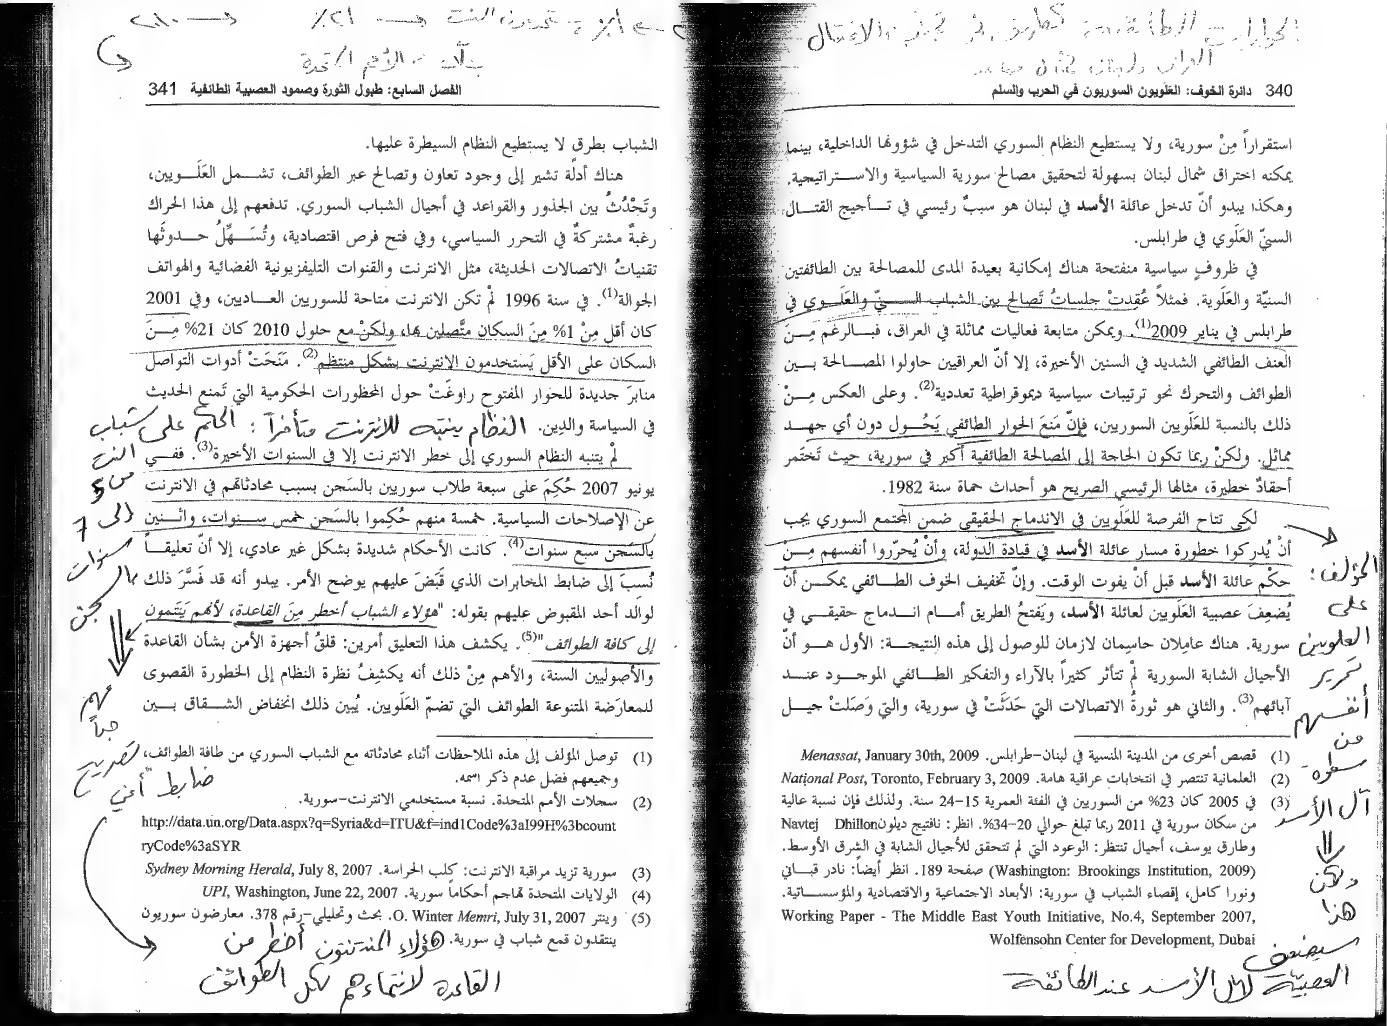 الحوارات الطائفية
340 دائرة الخوف: العَلَويون السوريون في الحرب والسلم
استقراراً مِنْ سورية، ولا يستطيع النظام السوري التدخل في شؤونها الداخلية، بينما
يمكنه اختراق شمال لبنان بسهولة لتحقيق مصالح سورية السياسية والاستـراتيجية.
وهكذا يبدو أنّ تدخل عائلة الأسد في لبنان هو سببٌ رئيسي في تـأجيج القتـال
السنيّ العَلَوي في طرابلس.
في ظروفٍ سياسية منفتحة هناك إمكانية بعيدة المدى للمصالحة بين الطائفتين
السنيّة والعَلَوية. فمثلاً عُقِدتْ جلساتُ تَصالح بين الشباب السـنيّ والعَلَـوي في
طرابلس في يناير 2009(1). ويمكن متابعة فعاليات مماثلة في العراق، فبـالرغم مِـنَ
العنف الطائفي الشديد في السنين الأخيرة، إلا أنّ العراقيين حاولوا المصـالحة بـين
الطوائف والتحرك نحو ترتيبات سياسية ديموقراطية تعددية(2). وعلى العكس مِـنْ
ذلك بالنسبة للعَلَويين السوريين، فإنّ مَنعَ الحوار الطائفي يَحُـول دون أي جهـد
مماثل. ولكنْ ربما تكون الحاجة إلى المصالحة الطائفية أكبر في سورية، حيث تَختَمر
أحقادٌ خطيرة، مثالها الرئيسي الصريح هو أحداث حماة سنة 1982.
لكي تتاح الفرصة للعَلَويين في الاندماج الحقيقي ضمن المجتمع السوري يجب
أنْ يُدرِكوا خطورة مسار عائلة الأسد في قيادة الدولة، وأنْ يُحرّروا أنفسهم مِـنْ
حكْم عائلة الأسد قبل أنْ يفوت الوقت. وإنّ تخفيف الخوف الطـائفي يمكـن أنْ
يُضعِفَ عصبية العَلَويين لعائلة الأسد، ويَفتحُ الطريق أمـام انـدماج حقيقـي في
سورية. هناك عامِلان حاسِمان لازمان للوصول إلى هذه النتيجـة: الأول هـو أنّ
الأجيال الشابة السورية لمْ تتأثر كثيراً بالآراء والتفكير الطـائفي الموجـود عنـد
آبائهم(3). والثاني هو ثورةُ الاتصالات التي حَدَثَتْ في سورية، والتي وَصَلَتْ جيـل
(1) قصص أخرى من المدينة المنسية في لبنان-طرابلس. Menassat, January 30th, 2009
(2) العلمانية تنتصر في انتخابات عراقية هامة. National Post, Toronto, February 3, 2009
(3) في 2005 كان 23% من السوريين في الفئة العمرية 15-24 سنة. ولذلك فإن نسبة عالية
من سكان سورية في 2011 ربما تبلغ حوالي 20-34%. انظر: نافتيج ديلون Navtej Dhillon
وطارق يوسف، أجيال تنتظر: الوعود التي لم تتحقق للأجيال الشابة في الشرق الأوسط.
(Washington: Brookings Institution, 2009) صفحة 189. انظر أيضاً: نادر قبـاني
ونورا كامل، إقصاء الشباب في سورية: الأبعاد الاجتماعية والاقتصادية والمؤسسـاتية.
Working Paper - The Middle East Youth Initiative, No.4, September 2007,
Wolfensohn Center for Development, Dubai
المؤلف:
على
العلويين
تحرير
أنفسهم
من
سطوة
آل الأسد
ولكن
هذا
سيضعف
العصبية لآل الأسد عند الطائفة
تحديد النت 21%
2010
بيانات الأمم المتحدة
الفصل السابع: طبول الثورة وصمود العصبية الطائفية 341
الشباب بطرق لا يستطيع النظام السيطرة عليها.
هناك أدلة تشير إلى وجود تعاون وتصالح عبر الطوائف، تشـمل العَلَـويين،
وتَحْدُثُ بين الجذور والقواعد في أجيال الشباب السوري. تدفعهم إلى هذا الحراك
رغبةٌ مشتركةٌ في التحرر السياسي، وفي فتح فرص اقتصادية، وتُسَـهِّلُ حـدوثَها
تقنياتُ الاتصالات الحديثة، مثل الانترنت والقنوات التليفزيونية الفضائية والهواتف
الجوالة(1). في سنة 1996 لمْ تكن الانترنت متاحة للسوريين العـاديين، وفي 2001
كان أقل مِنْ 1% مِنَ السكان متّصلين بها، ولكنْ مع حلول 2010 كان 21% مِـنَ
السكان على الأقل يَستخدمون الانترنت بشكل منتظم(2). مَنَحَتْ أدوات التواصل
منابرَ جديدة للحوار المفتوح راوغَتْ حول المحظورات الحكومية التي تَمنع الحديث
في السياسة والدِين. النظام ينتبه للانترنت متأخراً: الحكم على شباب
لمْ يتنبه النظام السوري إلى خطر الانترنت إلا في السنوات الأخيرة(3). ففـي
يونيو 2007 حُكِمَ على سبعة طلاب سوريين بالسَجن بسبب محادثاتهم في الانترنت
عن الإصلاحات السياسية. خمسة منهم حُكِموا بالسَجن خمس سـنوات، واثـنين
بالسَجن سبع سنوات(4). كانت الأحكام شديدة بشكل غير عادي، إلا أنّ تعليقـاً
نُسِبَ إلى ضابط المخابرات الذي قَبَضَ عليهم يوضح الأمر. يبدو أنه قد فَسَّرَ ذلك
لوالد أحد المقبوض عليهم بقوله: "هؤلاء الشباب أخطر مِنَ القاعدة، لأنهم يَنتَمون
إلى كافة الطوائف"(5). يكشف هذا التعليق أمرين: قلقُ أجهزة الأمن بشأن القاعدة
والأصوليين السنة، والأهم مِنْ ذلك أنه يكشِفُ نظرة النظام إلى الخطورة القصوى
للمعارَضة المتنوعة الطوائف التي تضمّ العَلَويين. يُبين ذلك انخفاض الشـقاق بـين
(1) توصل المؤلف إلى هذه الملاحظات أثناء محادثاته مع الشباب السوري من طافة الطوائف،
وجميعهم فضل عدم ذكر اسمه.
(2) سجلات الأمم المتحدة. نسبة مستخدمي الانترنت-سورية.
http://data.un.org/Data.aspx?q=Syria&d=ITU&f=ind1Code%3aI99H%3bcount
ryCode%3aSYR
(3) سورية تزيد مراقبة الانترنت: كلب الحراسة. Sydney Morning Herald, July 8, 2007
(4) الولايات المتحدة تهاجم أحكاماً سورية. UPI, Washington, June 22, 2007
(5) وينتر O. Winter Memri, July 31, 2007. بحث وتحليلي-رقم 378. معارضون سوريون
ينتقدون قمع شباب في سورية.
النت
من 5
إلى 7
سنوات
بالسجن
مهم
جداً
تصريح
ضابط أمني
هؤلاء المنتمون أخطر من
القاعدة لانتماءهم لكل الطوائف